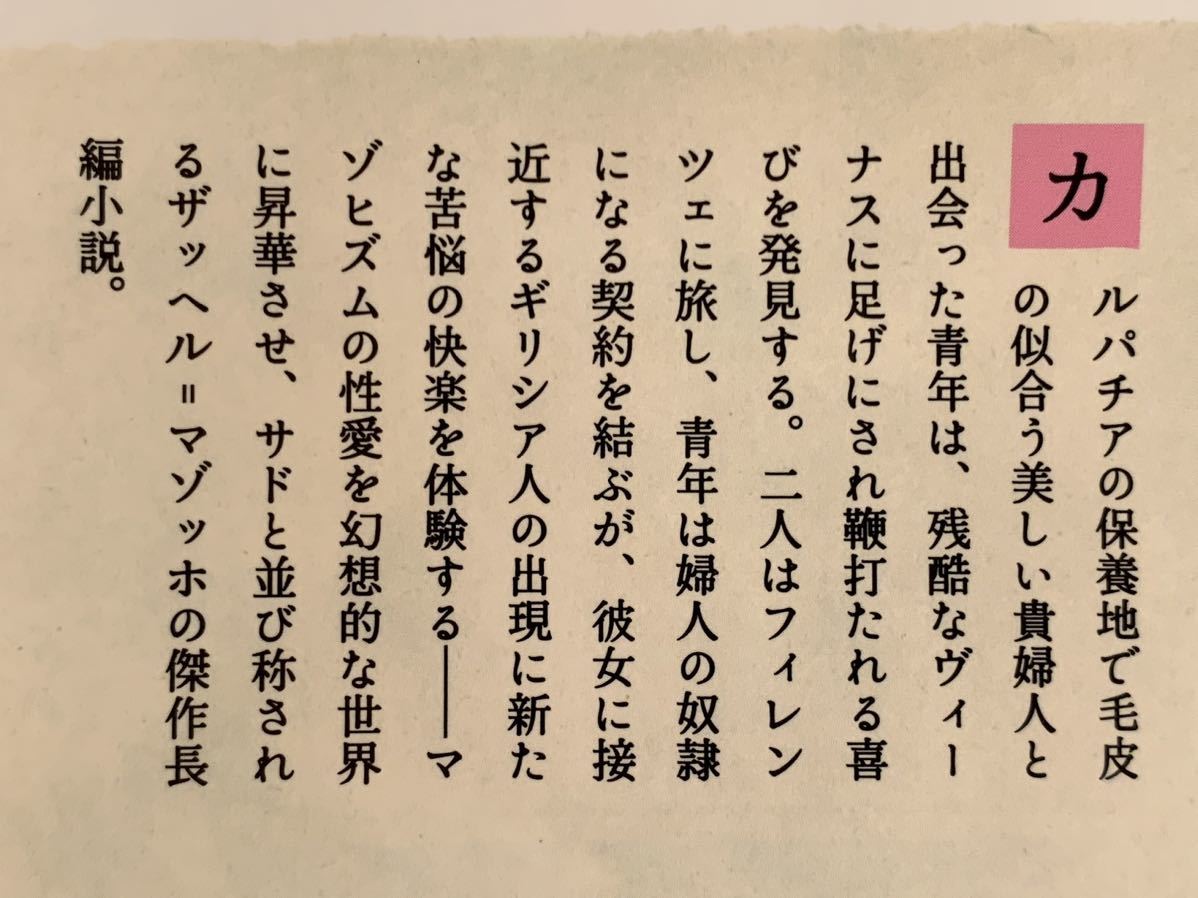 カルパチアの保養地で毛皮
の似合う美しい貴婦人と
出会った青年は、残酷なヴィー
ナスに足げにされ鞭打たれる喜
びを発見する。二人はフィレン
ツェに旅し、青年は婦人の奴隷
になる契約を結ぶが、彼女に接
近するギリシア人の出現に新た
な苦悩の快楽を体験する――マ
ゾヒズムの性愛を幻想的な世界
に昇華させ、サドと並び称され
るザッヘル=マゾッホの傑作長
編小説。